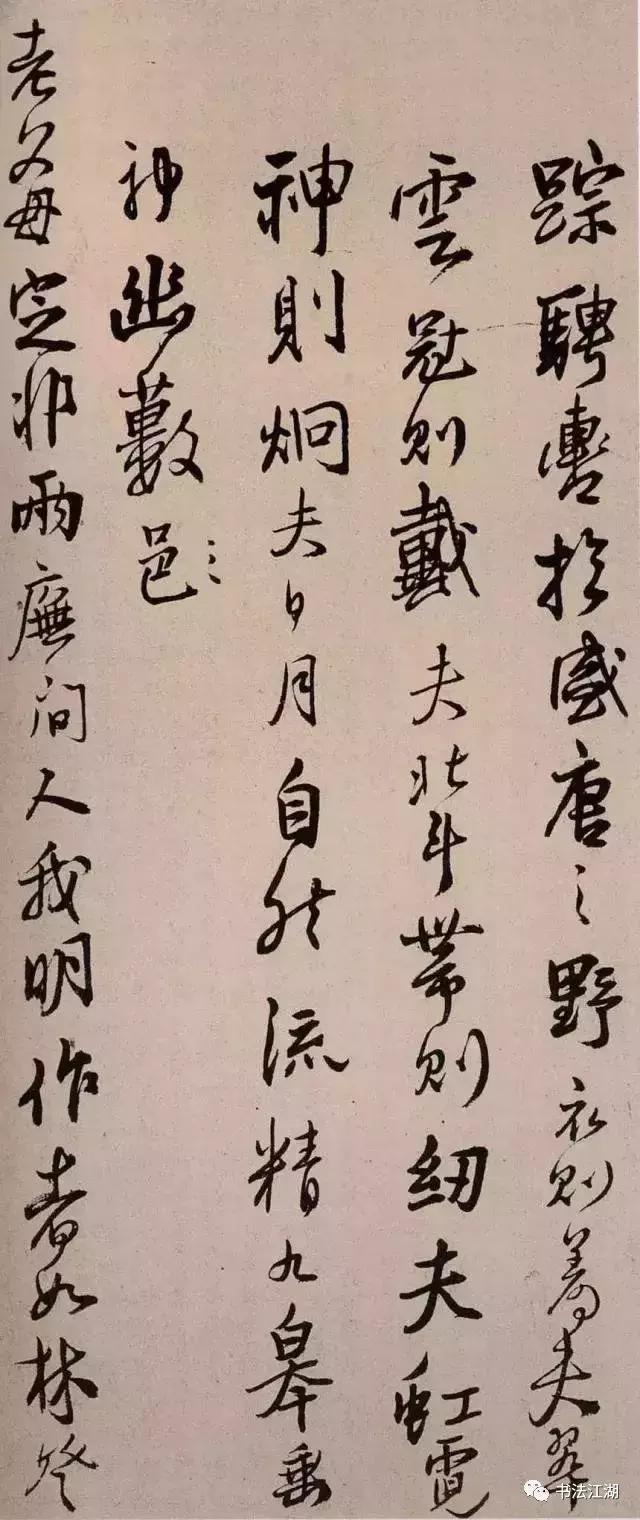 踪騁轡於盛唐之野衣則着夫翠
雲冠則戴夫北斗帶則紉夫虹霓
神則炯夫日月自然流精九皋垂
神幽藪邑〻
老父母定非兩廡間人我明作者如林
书法江湖